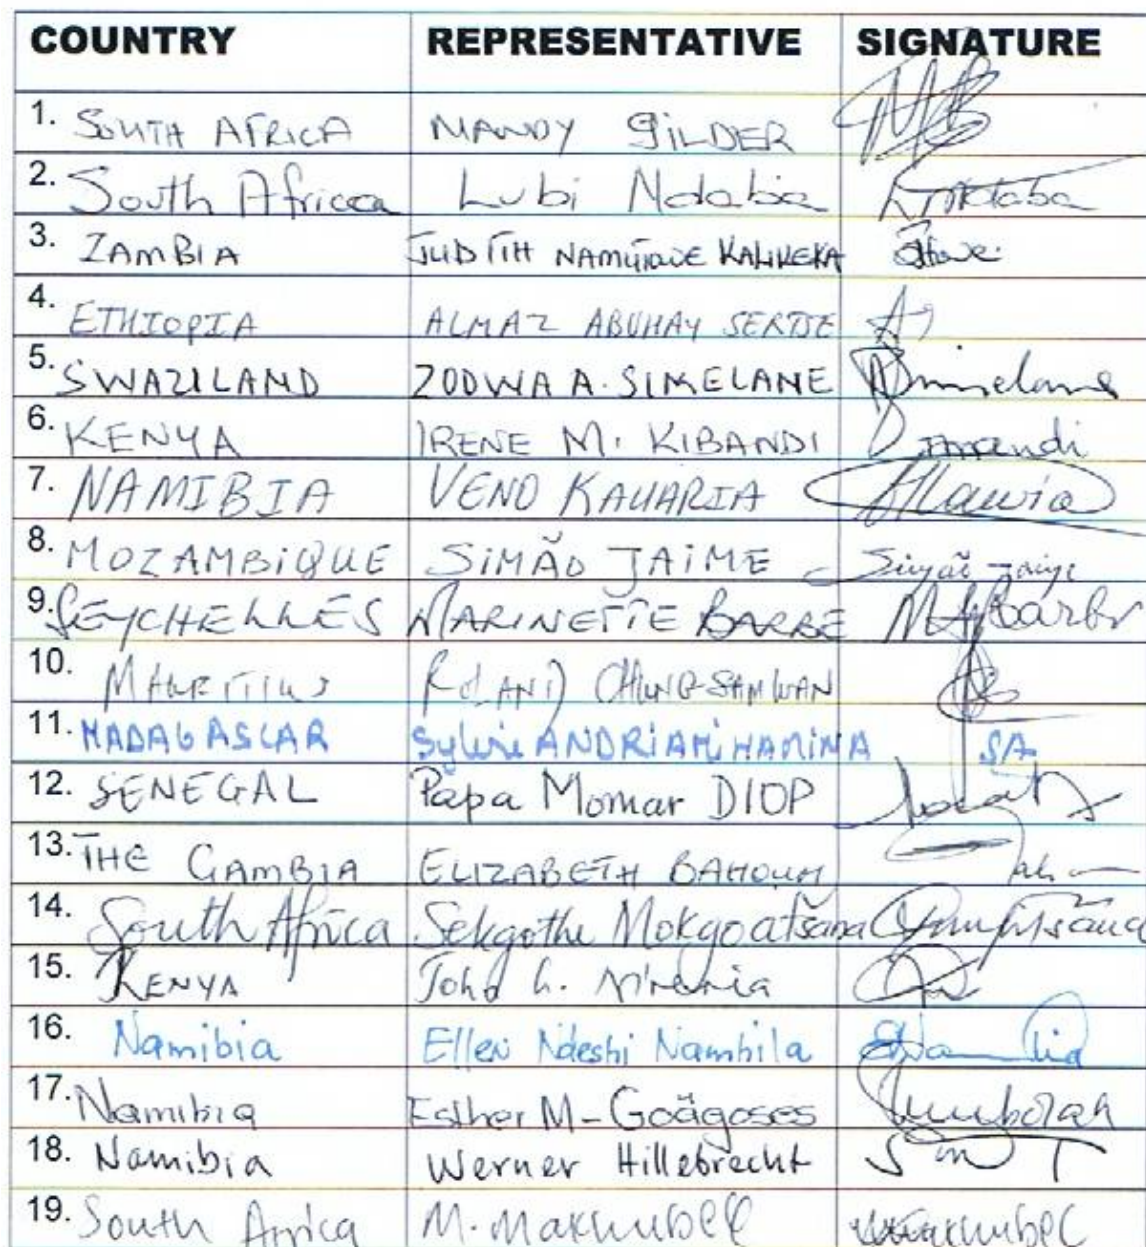 COUNTRY REPRESENTATIVE SIGNATURE
1. SOUTH AFRICA MANDY GILDER
2. South Africa Lubi Ndaba
3. ZAMBIA JUDITH
4. ETHIOPIA ALMAZ ABUHAY
5. SWAZILAND ZODWA A. SIMELANE
6. KENYA IRENE M. KIBANDI
7. NAMIBIA VENO KAUARIA
8. MOZAMBiQUE SiMÃO JAiME Simão Jaime
9. SEYCHELLES MARINETTE BARBE
10. MAURITIUS ROLAND CHUNG-SAM WAN
11. MADAGASCAR Sylvie ANDRiAMiHAMiNA SA
12. SENEGAL Papa Momar DIOP
13. THE GAMBIA ELIZABETH BAHOUM
14. South Africa Sekgothe Mokgoatšana
15. KENYA
16. Namibia Ellen Ndeshi Namhila
17. Namibia Esther M-Goägoses
18. Namibia Werner Hillebrecht
19. South Africa M. Makhubele